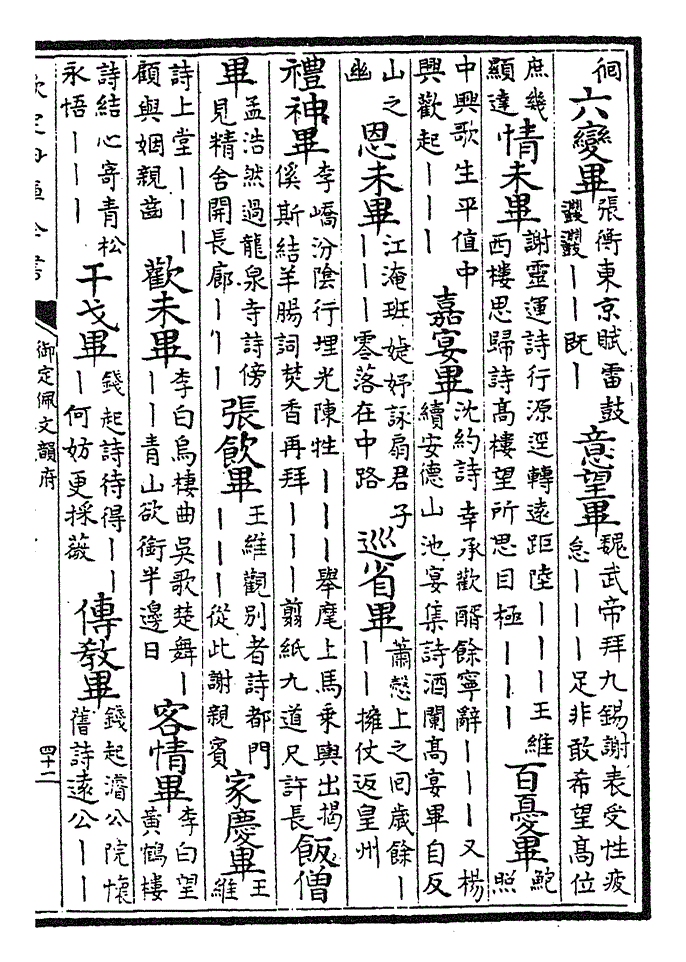 徊 六變畢 張衡東京賦雷鼓鼝鼝丨丨既丨 意望畢 魏武帝拜九錫謝表受性疲怠丨丨丨足非敢希望高位
庶幾顯達 情未畢 謝靈運詩行源逕轉遠距陸丨丨丨王維西樓思歸詩高樓望所思目極丨丨丨 百憂畢 鮑照
中興歌生平值中興歡起丨丨丨 嘉宴畢 沈約詩幸承歡醑餘寧辭丨丨丨又楊續安德山池宴集詩酒闌高宴畢自反
山之幽 恩未畢 江淹班婕妤詠扇君子丨丨丨零落在中路 巡省畢 蕭慤上之回歲餘丨丨丨擁仗返皇州
禮神畢 李嶠汾陰行埋光陳牲丨丨丨舉麾上馬乘輿出揭傒斯結羊腸詞焚香再拜丨丨丨翦紙九道尺許長 飯僧
畢 孟浩然過龍泉寺詩傍見精舍開長廊丨丨丨 張飲畢 王維觀別者詩都門丨丨丨從此謝親賓 家慶畢 王維
詩上堂丨丨丨顧與姻親齒 歡未畢 李白烏棲曲吳歌楚舞丨丨丨青山欲銜半邊日 客情畢 李白望黃鶴樓
詩結心寄青松永悟丨丨丨 干戈畢 錢起詩待得丨丨丨何妨更採薇 傳教畢 錢起濬公院懷舊詩遠公丨丨
御定佩文韻府
四十二